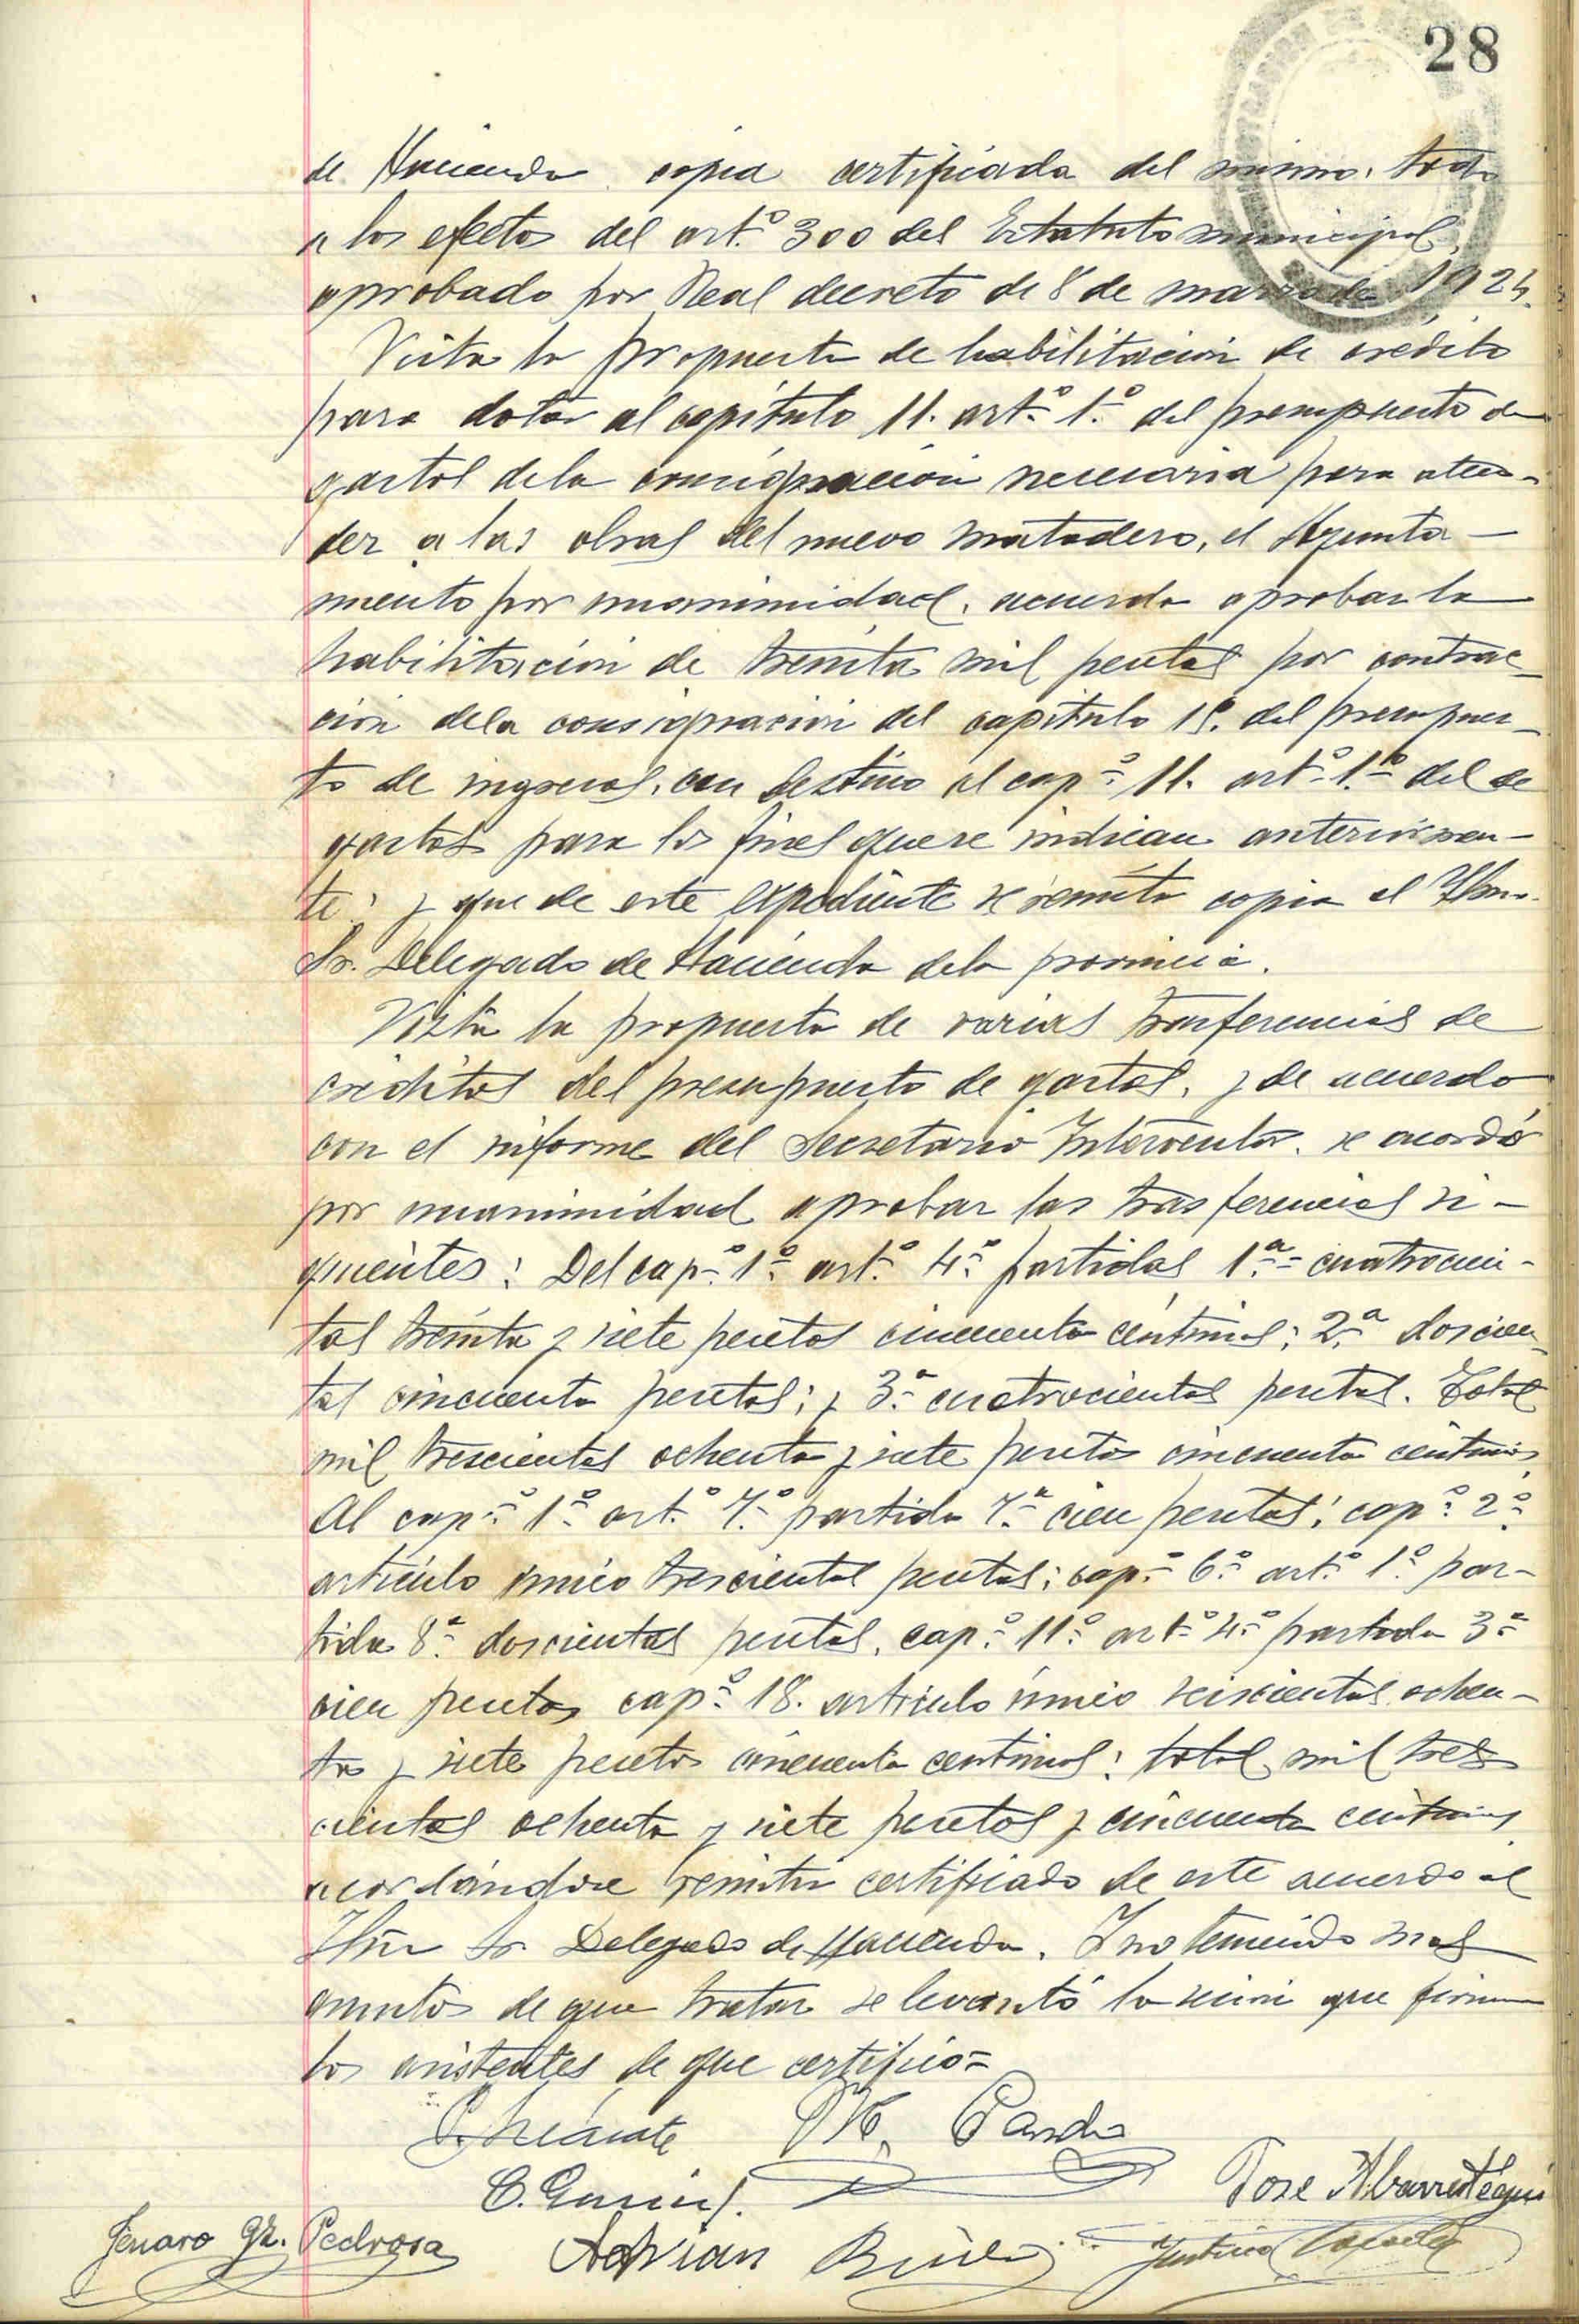 28
de Hacienda copia certificada del mismo, todo
a los efectos del art.º 300 del Estatuto municipal,
aprobado por Real decreto de 8 de marzo de 1924.
Vista la propuesta de habilitación de crédito
para dotar al capítulo 11. art.º 1.º del presupuesto de
gastos de la consignación necesaria para aten-
der a las obras del nuevo matadero, el Ayunta-
miento por unanimidad, acuerda aprobar la
habilitación de treinta mil pesetas por contrac-
ción de la consignación del capítulo 15. del presupues-
to de ingresos, con destino al cap.º 11. art.º 1.º del de
gastos para los fines que se indican anteriormen-
te; y que de este expediente se remita copia al Iltmo.
Sr. Delegado de Hacienda de la provincia.
Vista la propuesta de varias trasferencias de
créditos del presupuesto de gastos, y de acuerdo
con el informe del Secretario Interventor, se acordó
por unanimidad aprobar las trasferencias si-
guientes: Del cap.º 1.º art.º 4.º partidas 1.ª = cuatrocien-
tas treinta y siete pesetas cincuenta céntimos; 2.ª doscien
tas cincuenta pesetas; y 3.ª cuatrocientas pesetas. Total
mil trescientas ochenta y siete pesetas cincuenta céntimos
Al cap.º 1.º art.º 7.º partida 7.ª cien pesetas; cap.º 2.º
artículo único trescientas pesetas; cap.º 6.º art.º 1.º par-
tida 8.ª doscientas pesetas, cap.º 11.º art.º 4.º partida 3.ª
cien pesetas cap.º 18. artículo único seiscientas ochen-
ta y siete pesetas cincuenta centimos; total mil tres
cientas ochenta y siete pesetas y cincuenta centimos
acordándose remitir certificado de este acuerdo al
Iltmo Sr. Delegado de Hacienda. Y no teniendo mas
asuntos de que tratar se levantó la sesión que firman
los asistentes de que certifico=
Pando
José Abarrategui
Jenaro Gz. Pedrosa
Adrian
Justino